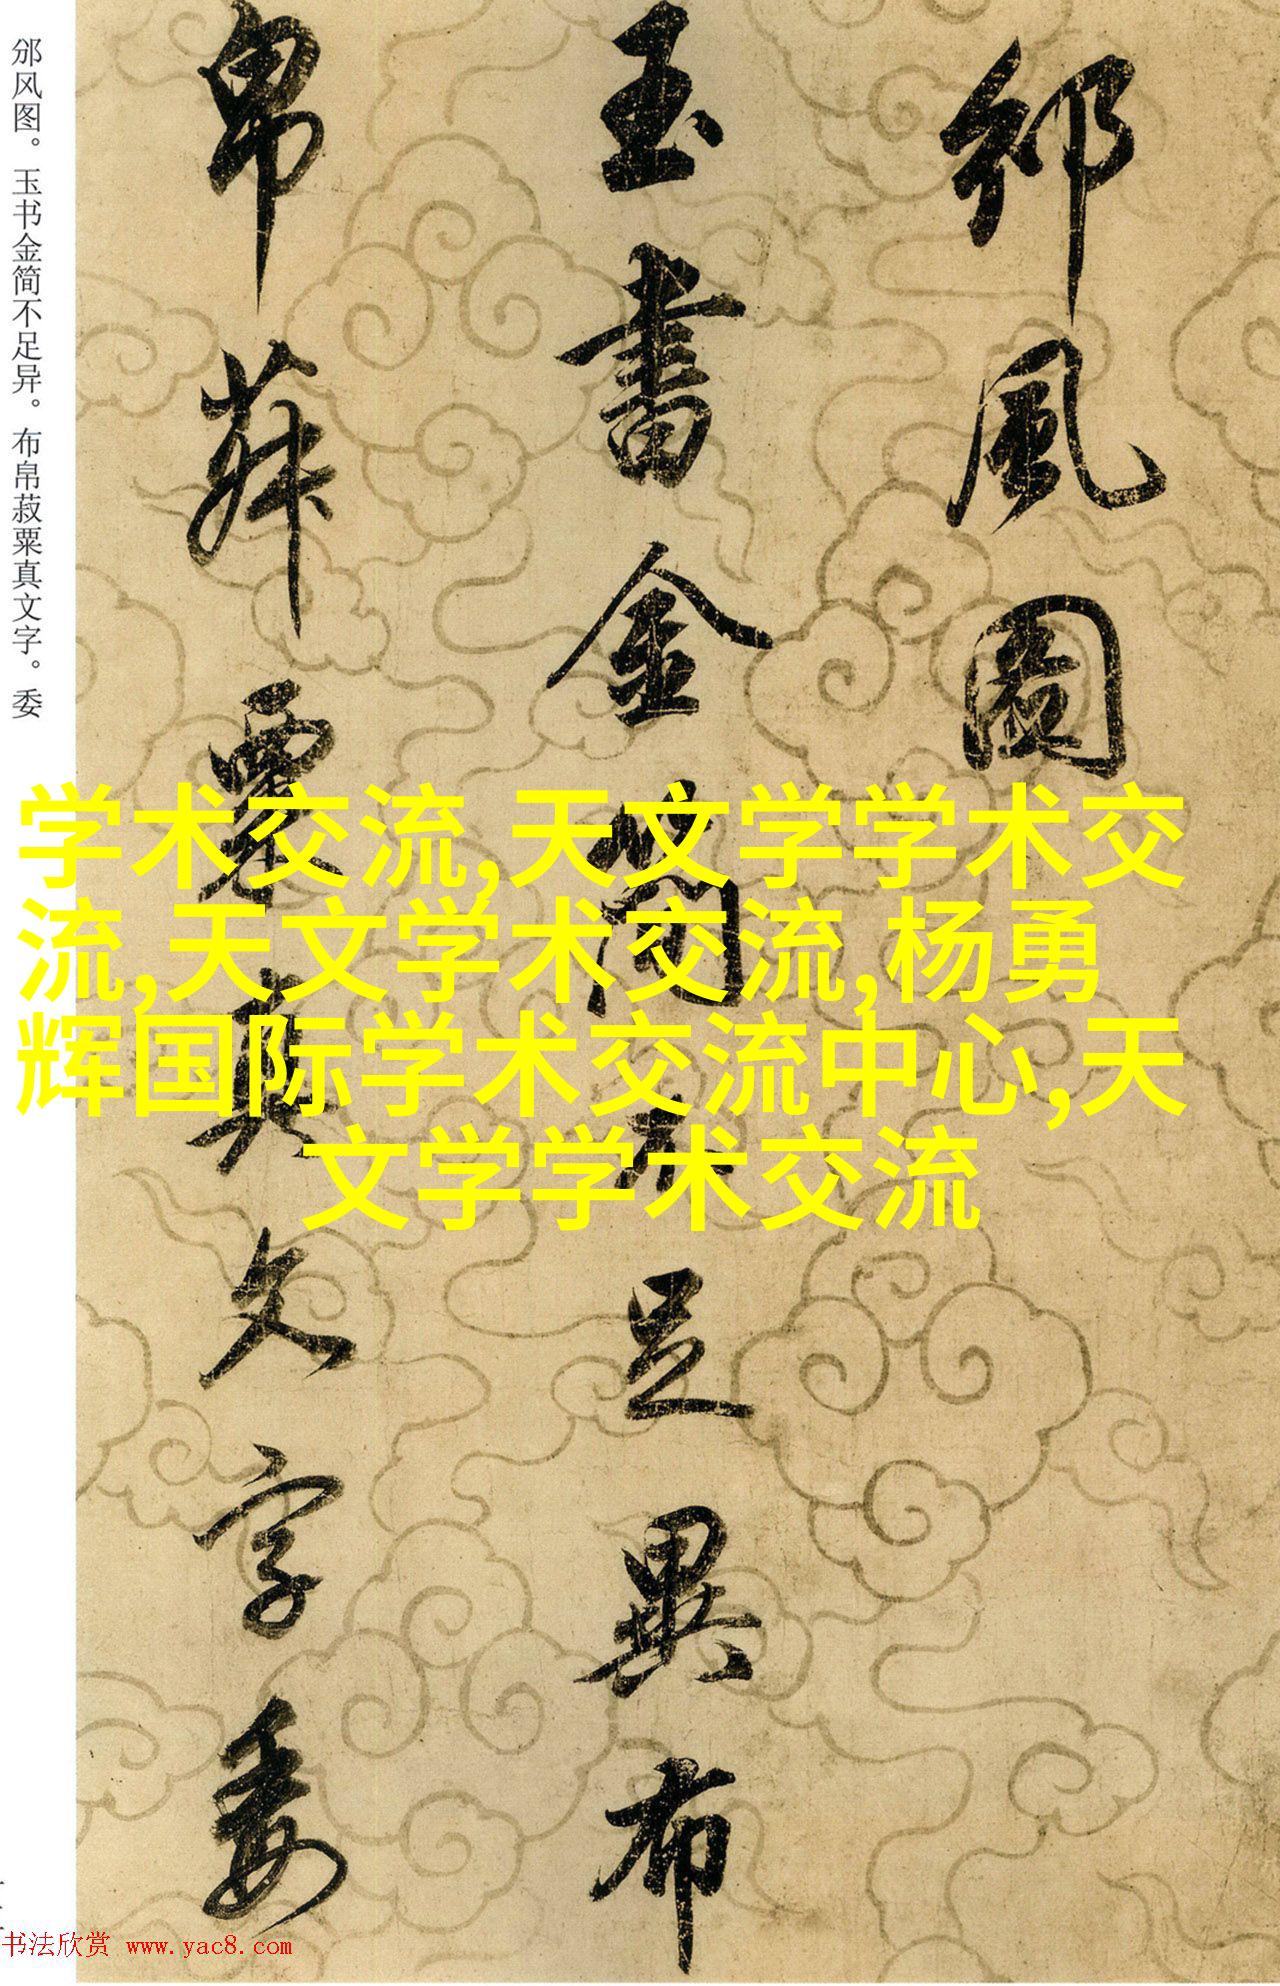 邠风图。玉书金简不足异。布帛菽粟真文字。委
邠風圖
玉書金簡不足異布
帛菽粟真文字委
学术交流,天文学学术交
流,天文学术交流,杨勇
辉国际学术交流中心,天
文学学术交流
书法欣赏 www.yac8.com